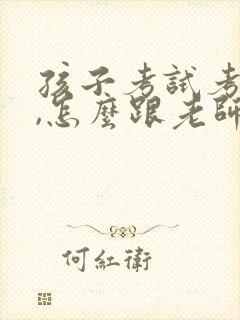 孩子考試考
,怎麼跟老師
何紅衛